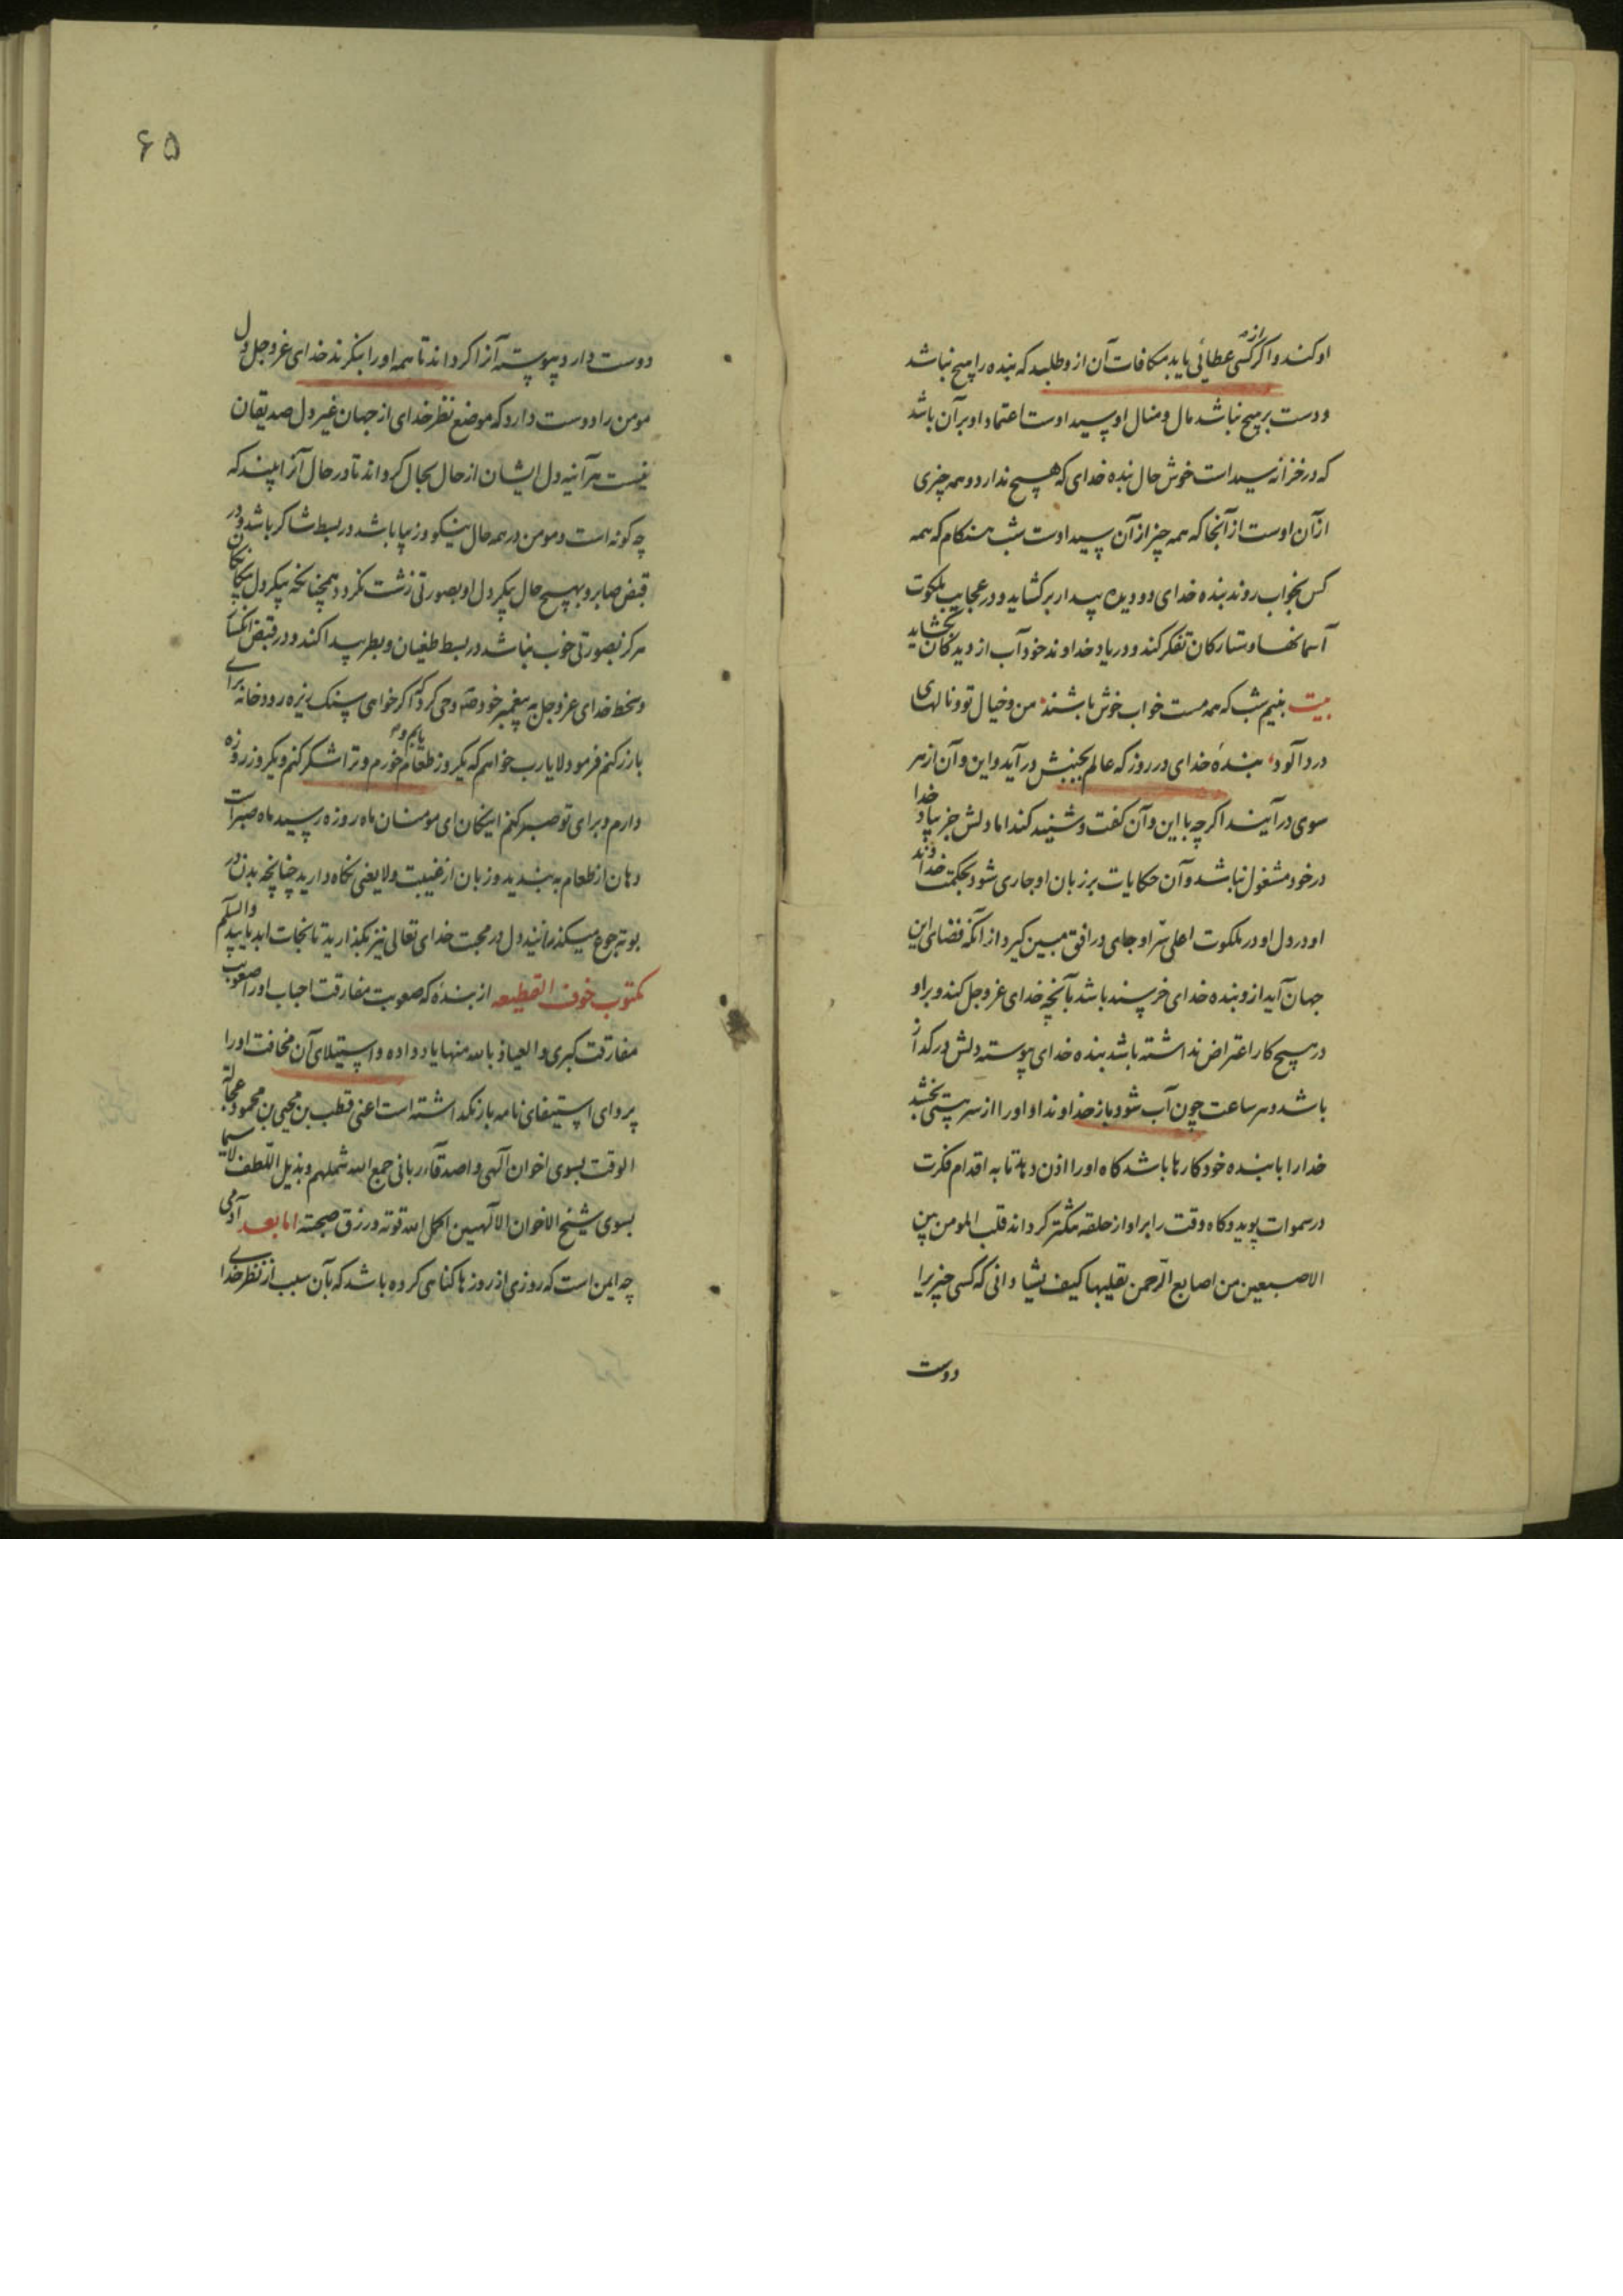 او کند و اگر از کسی عطائی یابد مکافات آن ازو طلبد که بنده را هیچ نباشد
و دست بر هیچ نباشد مال و منال او سید اوست اعتماد او بر آن باشد
که در خزانه سید است خوش حال بنده خدای که هیچ ندارد و همه چیزی
از آن اوست از آنجا که همه چیز از آن سید اوست شب هنگام که همه
کس بخواب روند بنده خدای دو دیده بیدار بر گشاید و در عجایب ملکوت
آسمانها و ستارگان تفکر کند و در یاد خداوند خود آب از دیدگان بگشاید
بیت بنیم شب که همه مست خواب خوش باشند من و خیال تو و نالهای
درد آلود بندهٔ خدای در روز که عالم بجنبش در آید و این و آن از هر
سوی در آیند اگر چه با این و آن گفت و شنید کند اما دلش جز بیاد خدا
در خود مشغول نباشد و آن حکایات بر زبان او جاری شود بحکمت خداوند
او در دل او در ملکوت اعلی سر او جای در افق مبین گیرد از آنکه فضای این
جهان آید ازو بنده خدای خرسند باشد بآنچه خدای عزوجل کند و بر او
در هیچ کار اعتراض نداشته باشد بنده خدای پیوسته دلش در گداز
باشد و هر ساعت چون آب شود باز خداوند او او را از سر هستی بخشد
خدا را با بنده خود کارها باشد گاه او را اذن دهد تا به اقدام فکرت
در سموات پوید و گاه وقت را بر او از حلقه تنگتر گرداند قلب المومن بین
الاصبعین من اصابع الرحمن یقلبها کیف یشا دانی که کسی چیزیرا
دوست
۶۵
دوست دارد پیوسته آنرا گرداند تا همه او را بنگرند خدای عزوجل دل
مومن را دوست دارد که موضع نظر خدای از جهان غیر دل صدیقان
نیست هر آنیه دل ایشان از حال بحال گرداند تا در حال آنرا بیند که
چه گونه است و مومن در همه حال نیکو و زیبا باشد در بسط شاکر باشد و در
قبض صابر و بهیچ حال پیکر دل او بصورتی زشت نگردد همچنانکه پیکر دل
هرگز بصورتی خوب نباشد در بسط طغیان و بطر پیدا کند و در قبض انکسار
و سخط خدای عزوجل به پیغمبر خود وحی کرد که اگر خواهی سنگ ریزه رودخانه برای
تو زر کنم فرمود لا یارب خواهم که یکروز طعام یابم و خورم و ترا شکر کنم و یکروز روزه
دارم و برای تو صبر کنم اینجان ای مومنان ماه روزه رسید ماه صبر است
دهان از طعام به بندید و زبان از غیبت و لا یعنی نگاه دارید چنانچه بدن در
بوته جوع میگذرانید دل در محبت خدای تعالی نیز بگذارید تا نجات ابد یابید والسلام
مکتوب خوف القطیعه از بنده که صعوبت مفارقت احباب او را صعوبت
مفارقت کبری و العیاذ بالله منها یاد داده و استیلای آن مخافت او را
پروای استیفای نامه باز نگذاشته است اعنی قطب بن محیی بن محمود عجالة
الوقت بسوی اخوان الهی و اصدقاء ربانی جمع الله شملهم و بذیل اللطف لاسیما
بسوی شیخ الاخوان الالهیین اکمل الله قوته و رزق صحته اما بعد آدمی
چه ایمن است که روزی از روزها گناهی کرده باشد که بآن سبب از نظر خدای